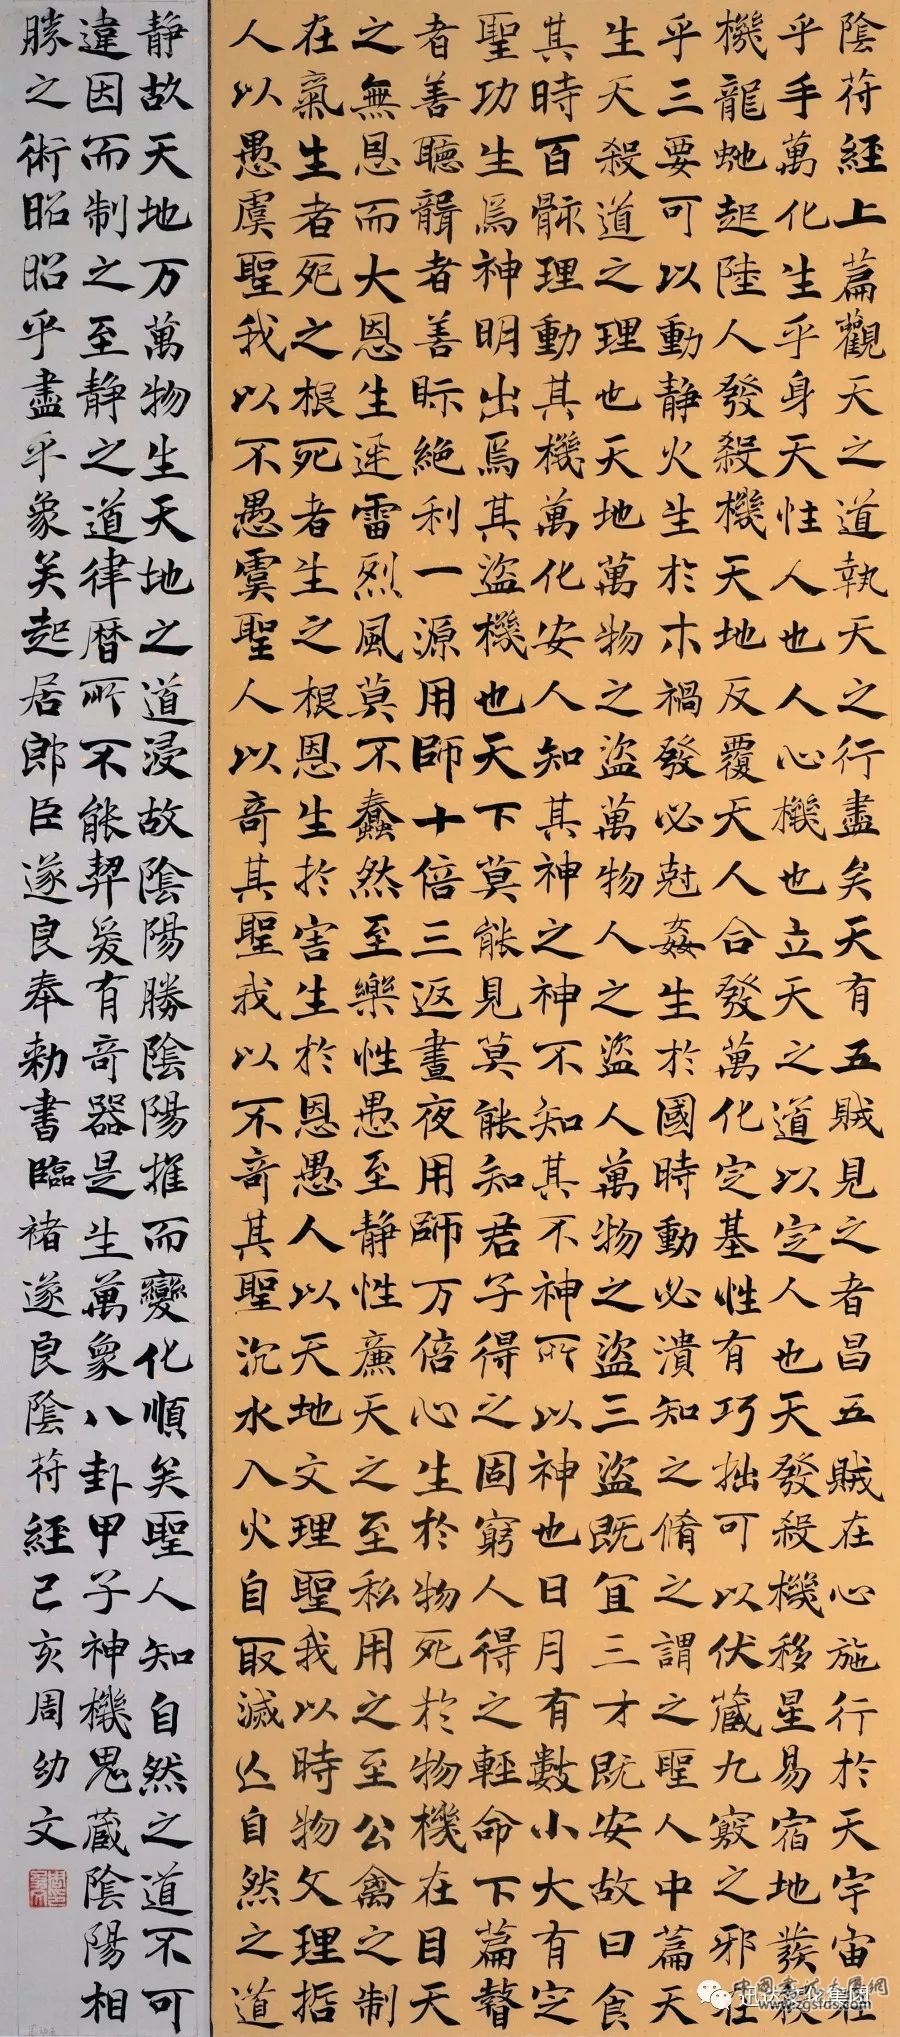 陰符經上篇觀天之道執天之行盡矣天有五賊見之者昌五賊在心施行於天宇宙在
乎手萬化生乎身天性人也人心機也立天之道以定人也天發殺機移星易宿地發殺
機龍虵起陸人發殺機天地反覆天人合發萬化定基性有巧拙可以伏藏九竅之邪在
乎三要可以動静火生於木禍發必尅姦生於國時動必潰知之脩之謂之聖人中篇天
生天殺道之理也天地萬物之盜萬物人之盜人萬物之盜三盜既宜三才既安故曰食
其時百骸理動其機萬化安人知其神之神不知其不神所以神也日月有數小大有定
聖功生焉神明出焉其盜機也天下莫能見莫能知君子得之固窮人得之輕命下篇瞽
者善聽聾者善眎絶利一源用師十倍三返晝夜用師万倍心生於物死於物機在目天
之無恩而大恩生迅雷烈風莫不蠢然至樂性愚至静性廉天之至私用之至公禽之制
在氣生者死之根死者生之根恩生於害生於恩愚人以天地文理聖我以時物文理哲
人以愚虞聖我以不愚虞聖人以奇其聖我以不奇其聖沉水入火自取滅亡自然之道
静故天地万萬物生天地之道浸故陰陽勝陰陽推而變化順矣聖人知自然之道不可
違因而制之至静之道律曆所不能契爰有奇器是生萬象八卦甲子神機鬼藏陰陽相
勝之術昭昭乎盡乎象矣起居郎臣遂良奉勅書臨褚遂良陰符經己亥周幼文
迅达文化集团